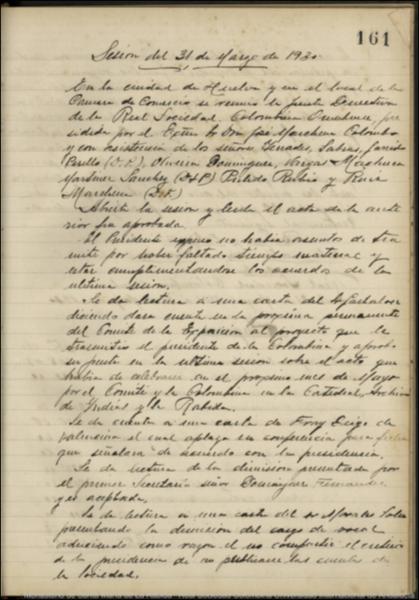 161
Sesión del 31 de Marzo de 1930
En la ciudad de Huelva y en el local de la
Cámara de Comercio se reunió la Junta Directiva
de la Real Sociedad Colombina Onubense, pre
sidida por el Excmo Sr Don José Marchena Colombo
y con asistencia de los señores, Terrades, Sabras, Garrido
Perelló (J. P.), Oliveira Domínguez, Vargas Machuca
Martínez Sánchez (D. J. P) Pulido Rubio y Ruiz
Marchena (
Abierta la sesión y leída el acta de la ante
rior fue aprobada.
El Presidente expuso no había asuntos de trá
mite por haber faltado tiempo material y
estar cumplimentándose los acuerdos de la
última sesión.
Se da lectura a una carta del Sr
diciendo dará cuenta en la próxima permanente
del Comité de la Exposición al proyecto que le
transmitió el presidente de la Colombina y aprobó
su junta en la última sesión sobre el acto que
había de celebrarse en el próximo mes de Mayo
por el Comité y la Colombina en la Catedral, Archivo
de Indias y la Rábida.
Se da cuenta a una carta de Fray Diego de
Valencina el cual aplaza su conferencia para fecha
que señalará de acuerdo con la presidencia.
Se da lectura de la dimisión presentada por
el primer Secretario señor Domínguez Fernández
y es aceptada.
Se da lectura a una carta del Sr Morales
presentando la dimisión del cargo de vocal
aduciendo como razón el no compartir el criterio
de la presidencia de no publicarse las cuentas de
la Sociedad.